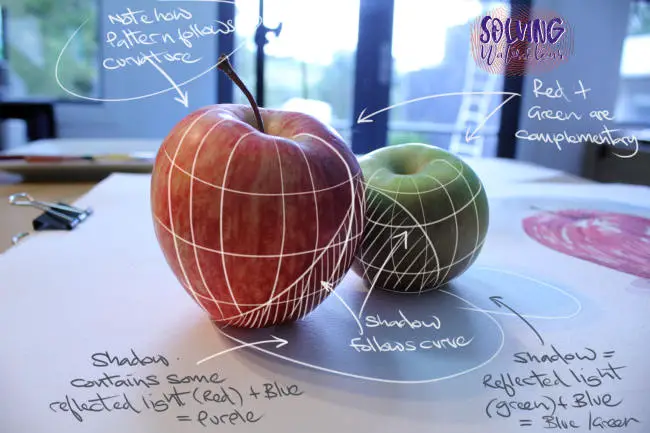 Note how
Pattern follows
curvature
SOLVING
Watercolour
Red +
Green are
complementary
shadow
follows curve
Shadow.
contains some
reflected light (Red) + Blue
= Purple
Shadow =
Reflected light
(green) + Blue
= Blue/Green